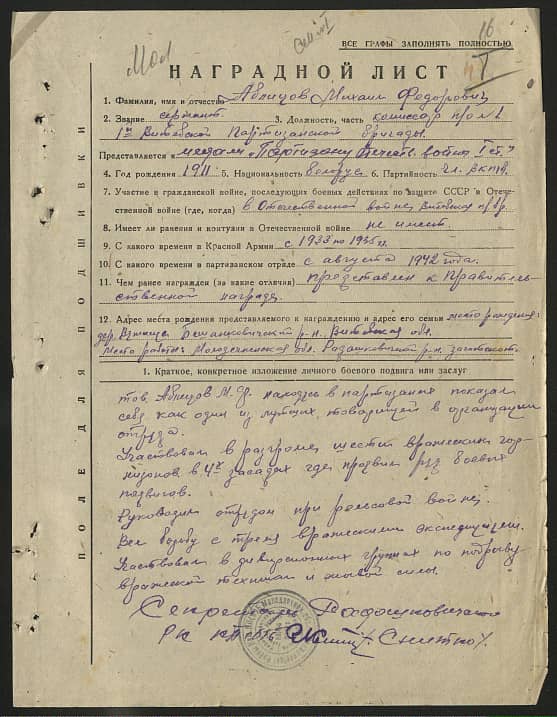 16
ВСЕ ГРАФЫ ЗАПОЛНЯТЬ ПОЛНОСТЬЮ
I
НАГРАДНОЙ ЛИСТ
1. Фамилия, имя и отчество Михаил Федорович
2. Звание сержант 3. Должность, часть комиссар
1ой Витебской Партизанской бригады.
Представляется к медали "Партизану Отечеств. войны I ст."
4. Год рождения 1911 5. Национальность белорус 6. Партийность чл. ВКП(б)
7. Участие в гражданской войне, последующих боевых действиях по защите СССР и Отече-
ственной войне (где, когда) в Отечественной войне, Витебская
8. Имеет ли ранения и контузии в Отечественной войне не имеет
9. С какого времени в Красной Армии с 1933 по 1935 г.
10. С какого времени в партизанском отряде с августа 1942 года.
11. Чем ранее награжден (за какие отличия) представлен к Правитель-
ственной награде.
12. Адрес места рождения представляемого к награждению и адрес его семьи место рождения:
дер. Бешанковический р-н. Витебская обл.
Место работы: Молодеченская обл. Радашковичский р-н.
1. Краткое, конкретное изложение личного боевого подвига или заслуг
тов. М. Ф. находясь в партизанах показал
себя как один из лучших товарищей в организации
отряда.
Участвовал в разгроме шести вражеских гар-
низонов в 4х засадах где проявил ряд боевых
подвигов.
Руководил отрядом при рельсовой войне.
Вел борьбу с тремя вражескими экспедициями.
Участвовал в диверсионных группах по подрыву
вражеской техники и живой силы.
Секретарь Радошковичского
РК КП(б)Б
ПОЛЕ ДЛЯ ПОДШИВКИ